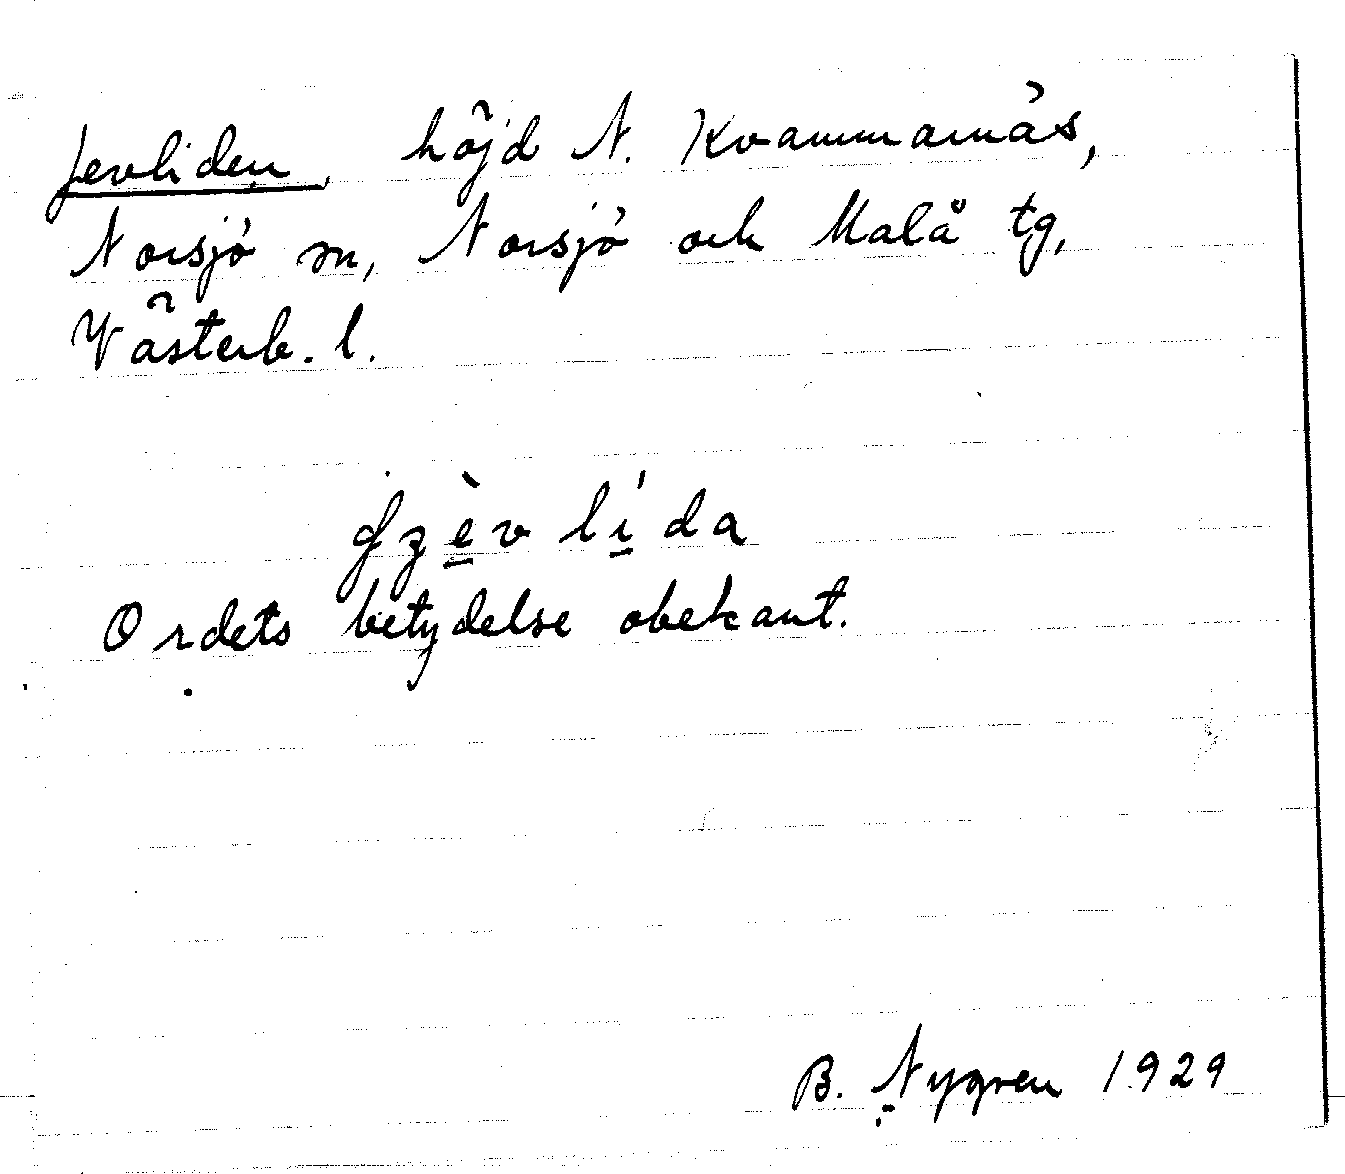 Jevliden, höjd N. Kvammarnäs,
Norsjö sn, Norsjö och Malå tg,
Västerb. l.
Ordets betydelse obekant.
B. Nygren 1929